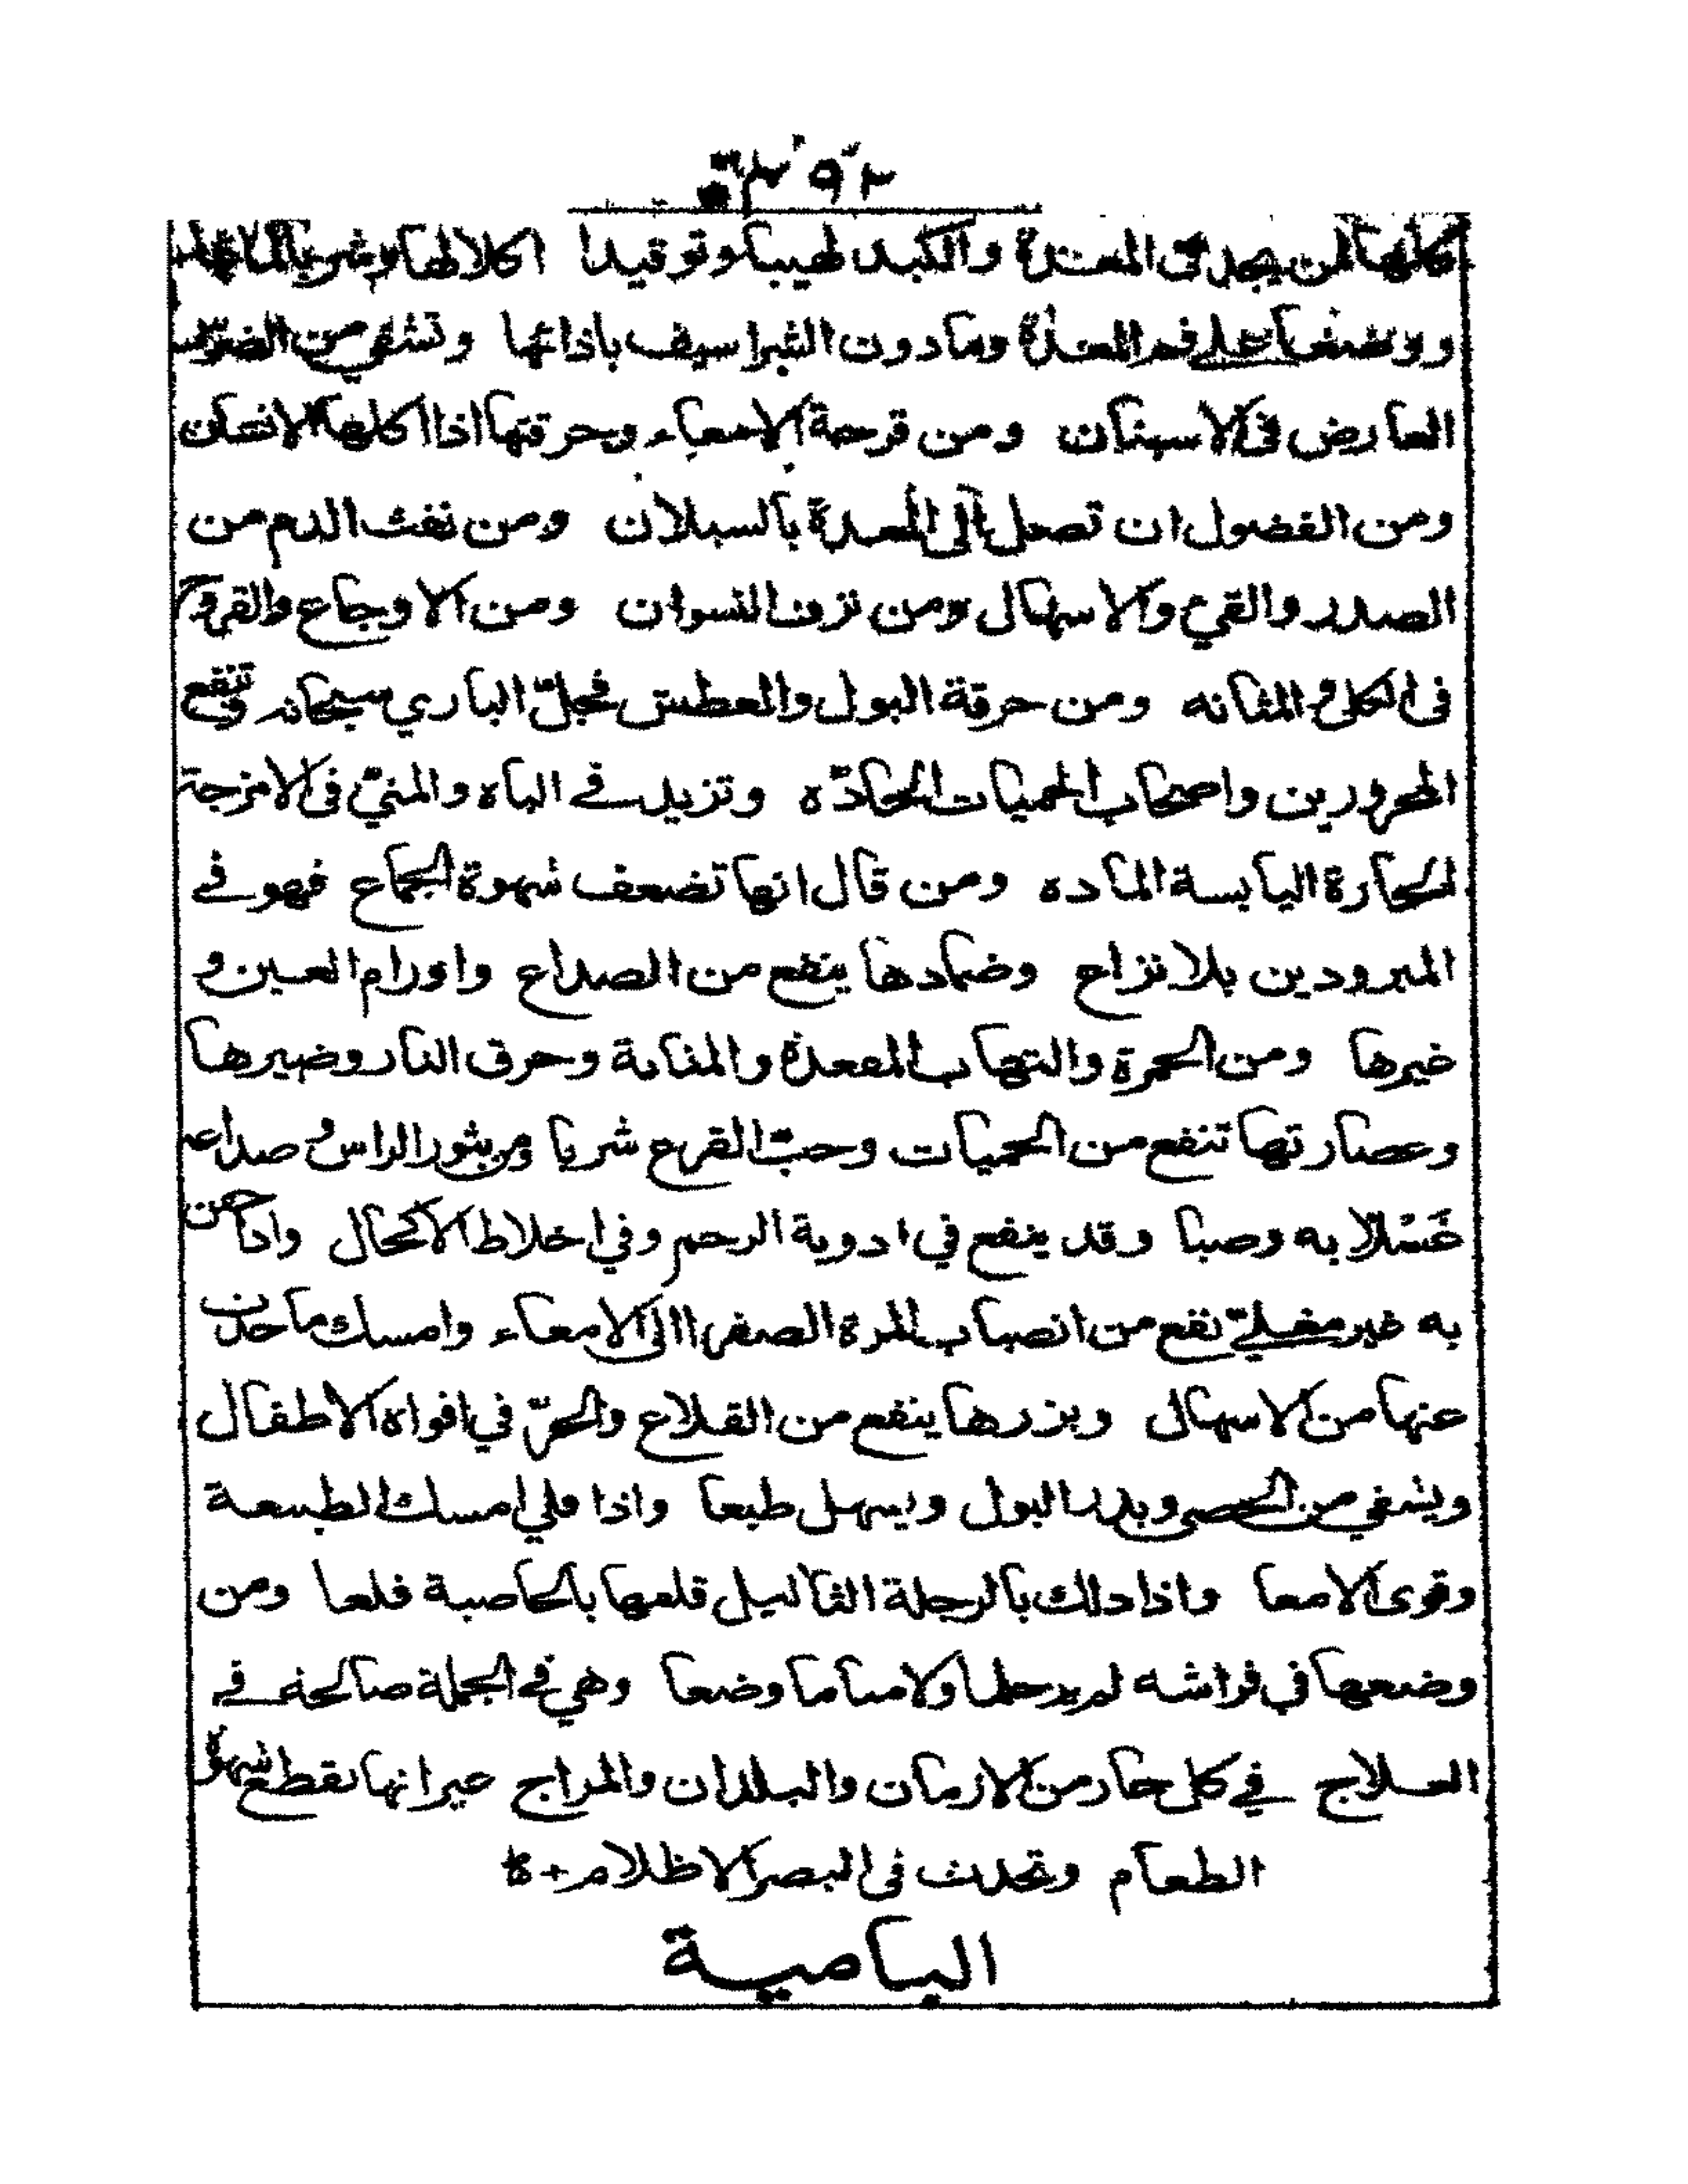 كلها لمن يجد فى المعدة والكبد لهيبا وتوقيدا اكلا لها وشربا لمائها
ووضعها على فم المعدة وما دون الشراسيف باذائها وتشفي من الضرس
العارض فى الاسنان ومن قرحة الامعاء وحرقتها اذا اكلها الانسان
ومن الفضول ان تصل الى المعدة بالسيلان ومن نفث الدم من
الصدر والقيء والاسهال ومن نزف النسوان ومن الاوجاع والقروح
فى الكلى والمثانه ومن حرقة البول والعطش فجلّ الباري سبحانه وتنفع
المحرورين واصحاب الحميات الحادّه وتزيد في الباه والمنيّ فى الامزجة
الحارة اليابسة الماده ومن قال انها تضعف شهوة الجماع فهو في
المبرودين بلا نزاح وضمادها ينفع من الصداع واورام العين و
غيرها ومن الحمرة والتهاب المعدة والمثانة وحرق النار وضيرها
وعصارتها تنفع من الحميات وحبّ القرع شربا ومن بثور الراس و صداعه
غَسْلا به وصبا وقد ينفع في ادوية الرحم وفي اخلاط الاكحال واذا حقن
به غير مغليّ نفع من انصباب المرة الصفرا الى الامعاء وامسك ما حدث
عنها من الاسهال وبزرها ينفع من القلاع والحرّ في افواه الاطفال
ويشفي من الحصى ويدر البول ويسهل طبعا واذا قلي امسك الطبيعة
وقوى الامعا واذا دلك بالرجلة الثاليل قلعها بالخاصية قلعا ومن
وضعها في فراشه لم ير حلما ولا مناما وضعا وهي في الجملة صالحة في
العلاج في كل حار من الازمان والبلدان والمزاج غير انها تقطع شهوة
الطعام وتحدث فى البصر الاظلام
الباصية